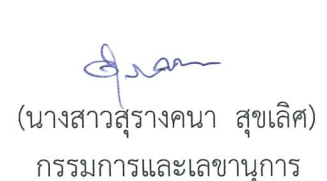 (นางสาวสุรางคนา สุขเลิศ)
กรรมการและเลขานุการ